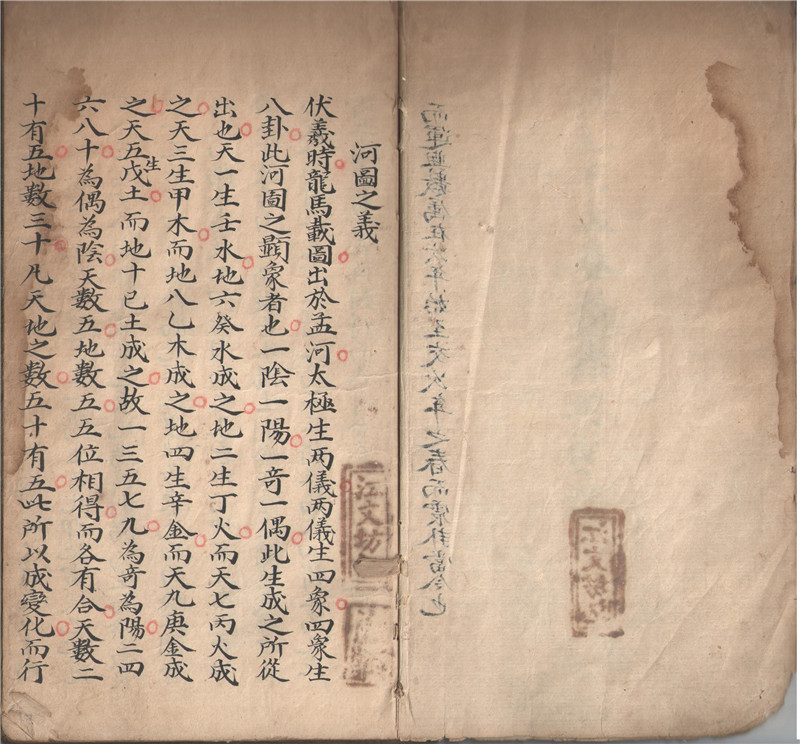 江文坊
河圖之義
江文坊
伏羲時龍馬載圖出於孟河太極生两儀两儀生四象四象生
八卦此河圖之顕象者也一陰一陽一竒一偶此生成之所從
出也天一生壬水地六癸水成之地二生丁火而天七丙火成
之天三生甲木而地八乙木成之地四生辛金而天九庚金成
之天五生戊土而地十己土成之故一三五七九為奇為陽二四
六八十為偶為陰天數五地數五五位相得而各有合天數二
十有五地數三十凡天地之數五十有五此所以成變化而行